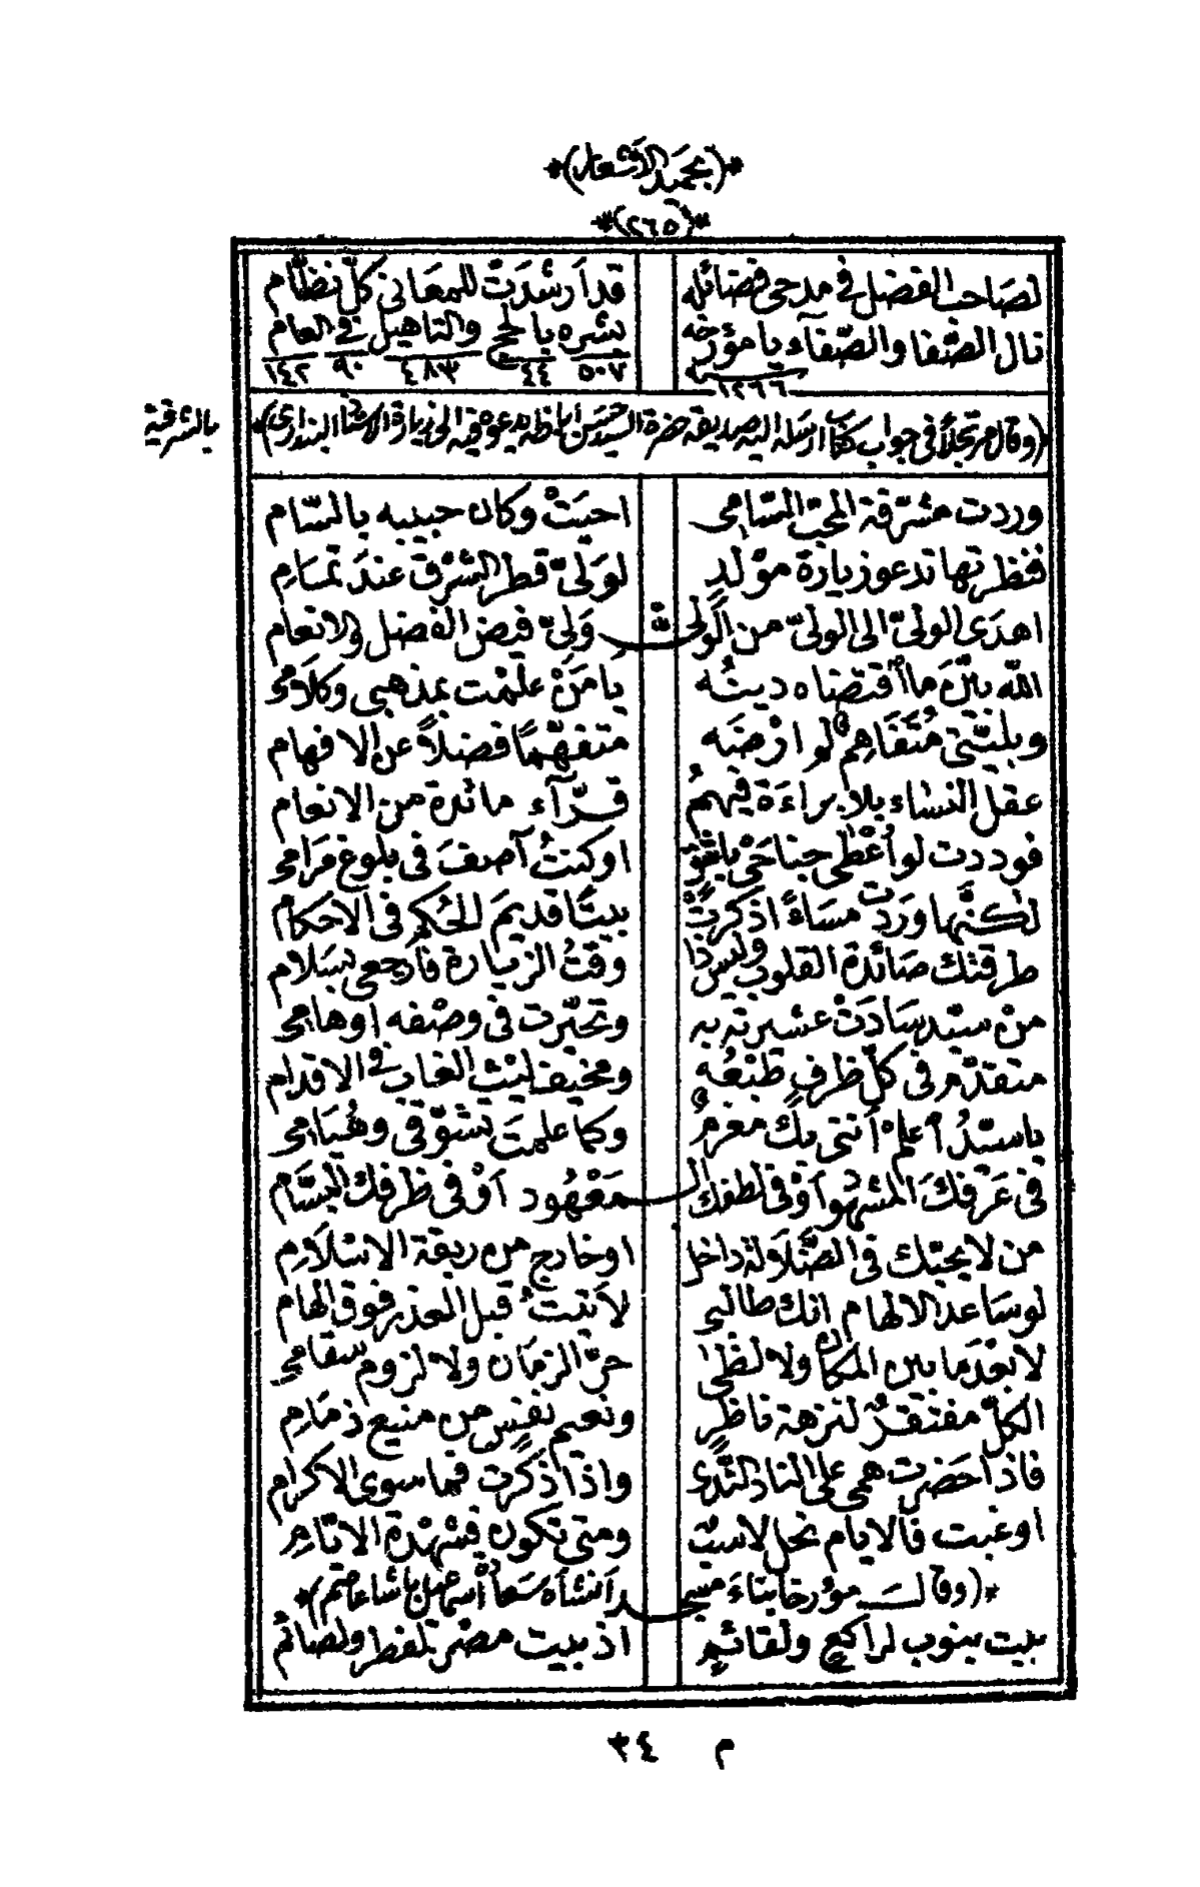 *(بحميد الاشعار)*
*(٢٦٥)*
لصاحب الفضل في مدحي فضائله قد أرشدت للمعاني كلّ نظّام
نال الصّفا والصّفآء يا مؤرخه بشره بالحج والتاهيل في العام
١٢٦٦ ٥٠٧ ٤٤ ٤٨٣ ٩٠ ١٤٢
(وقال مرتجلاً في جواب كتاب ارسله اليه صديقه حضرة السيد حسن اباظه يدعوه فيه الى زيارة الاستاذ البنداري) بالشرقية
وردت مشرّفة المحبّ السّامى احيَتْ وكان حبيبه بالسّام
فنظرتها تدعو زيارة موْلدٍ لوَلىّ قطر الشرْق عندَ تمَامِ
اهدَى الولىّ الى الولىّ من الوَلىّ وَلىّ فيض الفضل والانعام
اللّه بيّنَ ما اقتضاه ديثُه يا مَنْ علمْت بمذهبي وكلَامى
وبليتنى مُتَفَاهم لو ارْضَه متفهّمًا فضلاً عن الافهام
عقل النساء بلا براءَة فهمُ قرّآء مائدة من الانعام
فوددت لو أعْطى جناحَىْ او كنتُ آصفَ فى بلوغ مَرَامى
لكنّها ورَدت مساءً اذكرَتْ بيتًا قديمَ الحُكم فى الاحكام
طرقتك صَائدة القلوب وليس ذا وقتُ الزيارة فارجعى بسَلام
منْ سيّد سَادَتْ عشيرته به وتحيّرت فى وصْفه اوهامى
متقدّم فى كلّ ظرفٍ طبْعُه ومخيف ليْث الغاب فى الاقدام
يا سيّدُ أعلمْ أننى بك مغرمٌ وكما علمتَ تشوّقى وهُيَامى
فى عَرْفكَ المشهود أوْ فى لطفك الـ مَعْهُود أوْ فى ظرفك البسّام
من لا يحبّك فى الضّلاَلة داخل او خارج من ربقة الاسْلامِ
لو سَاعد الالهام انك طالبى لأتيتُ قبل العذر فوق الهام
لا بعْدَ ما بين المكان ولا لظى حرّ الزمَان ولا لزوم سقامى
الكلّ مفتقرٌ لنزهة ناظرٍ ونعيم نفسٍ من منيع ذمَام
فاذا حَضرت همى على الناد النّدى واذا ذكرت فما سوى الاكرام
او غبت فالايام نحل لاسبٌ ومتى تكون فشهْدة الانامِ
*(وقال مؤرخا بناءَ مسجد أنشأه سَعادة اسماعيل باشا عاصم)*
بيت ينوب لراكعٍ ولقائمٍ اذ بيت مصْر تلفطر ولصائم
م ٣٤